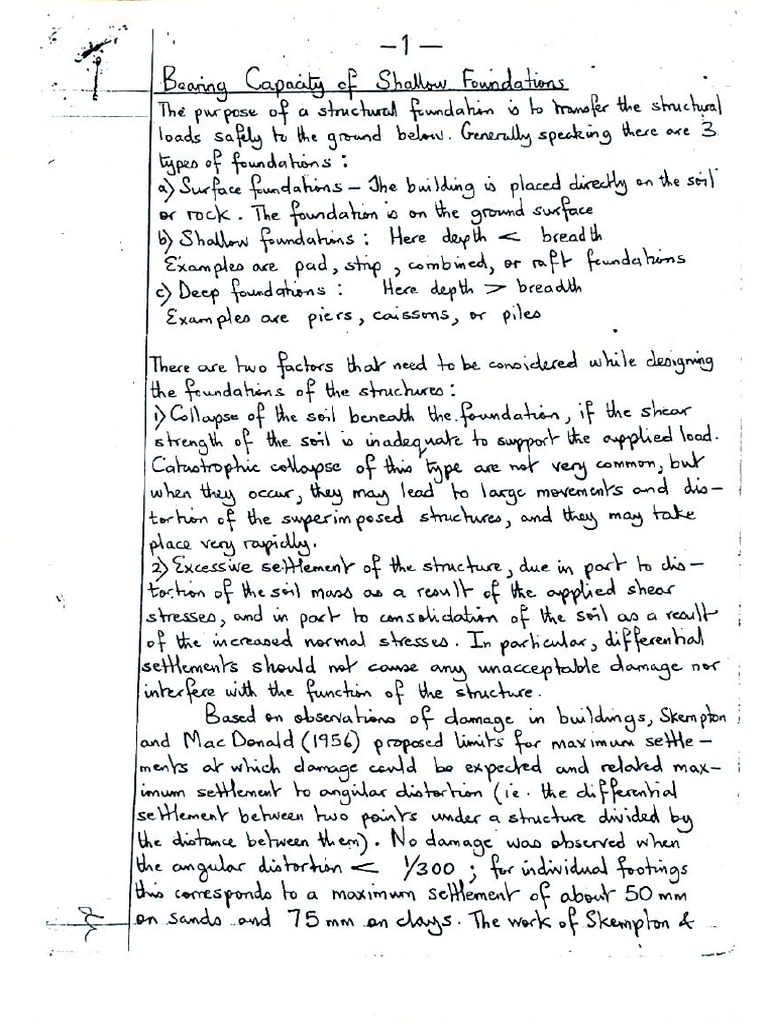 -1-
Bearing Capacity of Shallow Foundations
The purpose of a structural foundation is to transfer the structural
loads safely to the ground below. Generally speaking there are 3
types of foundations :
a) Surface foundations - The building is placed directly on the soil
or rock. The foundation is on the ground surface
b) Shallow foundations : Here depth < breadth
Examples are pad, strip, combined, or raft foundations
c) Deep foundations : Here depth > breadth
Examples are piers, caissons, or piles
There are two factors that need to be considered while designing
the foundations of the structures :
1) Collapse of the soil beneath the foundation, if the shear
strength of the soil is inadequate to support the applied load.
Catastrophic collapse of this type are not very common, but
when they occur, they may lead to large movements and dis-
tortion of the superimposed structures, and they may take
place very rapidly.
2) Excessive settlement of the structure, due in part to dis-
tortion of the soil mass as a result of the applied shear
stresses, and in part to consolidation of the soil as a result
of the increased normal stresses. In particular, differential
settlements should not cause any unacceptable damage nor
interfere with the function of the structure.
Based on observations of damage in buildings, Skempton
and MacDonald (1956) proposed limits for maximum settle-
ments at which damage could be expected and related max-
imum settlement to angular distortion (ie. the differential
settlement between two points under a structure divided by
the distance between them). No damage was observed when
the angular distortion < 1/300 ; for individual footings
this corresponds to a maximum settlement of about 50 mm
on sands and 75 mm on clays. The work of Skempton &